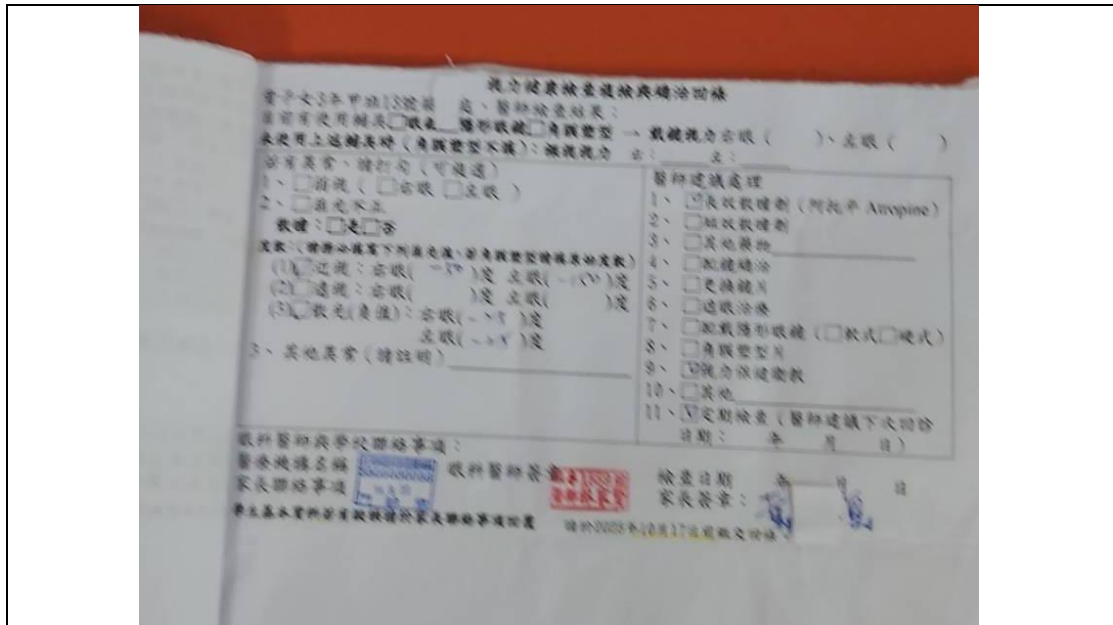 視力健康檢查複檢與矯治回條
貴子女3年甲班13號 處、醫師檢查結果：
目前有使用輔具□眼鏡 隱形眼鏡□角膜塑型 → 戴鏡視力右眼（ ）、左眼（ ）
未使用上述輔具時（角膜塑型不填）：裸視視力 右：____ 左：____
若有異常，請打勾（可複選）
1、□弱視（□右眼 □左眼）
2、□屈光不正
散瞳：□是□否
(1) 近視：右眼( )度 左眼( )度
(2)□遠視：右眼( )度 左眼( )度
(3) 散光(負值)：右眼( )度
左眼( )度
3、其他異常（請註明）
醫師建議處理
1、☑長效散瞳劑（阿托平 Atropine）
2、□短效散瞳劑
3、□其他藥物
4、□配鏡矯治
5、□更換鏡片
6、□遮眼治療
7、□配戴隱形眼鏡（□軟式□硬式）
8、□角膜塑型片
9、☑視力保健衛教
10、□其他
11、☑定期檢查（醫師建議下次回診
日期： 年 月 日）
眼科醫師與學校聯絡事項：
醫療機構名稱 眼科醫師簽章 檢查日期 年 月 日
家長聯絡事項 家長簽章：
學生基本資料若有 請於家長聯絡事項 請於2025年10月17日前繳交回條